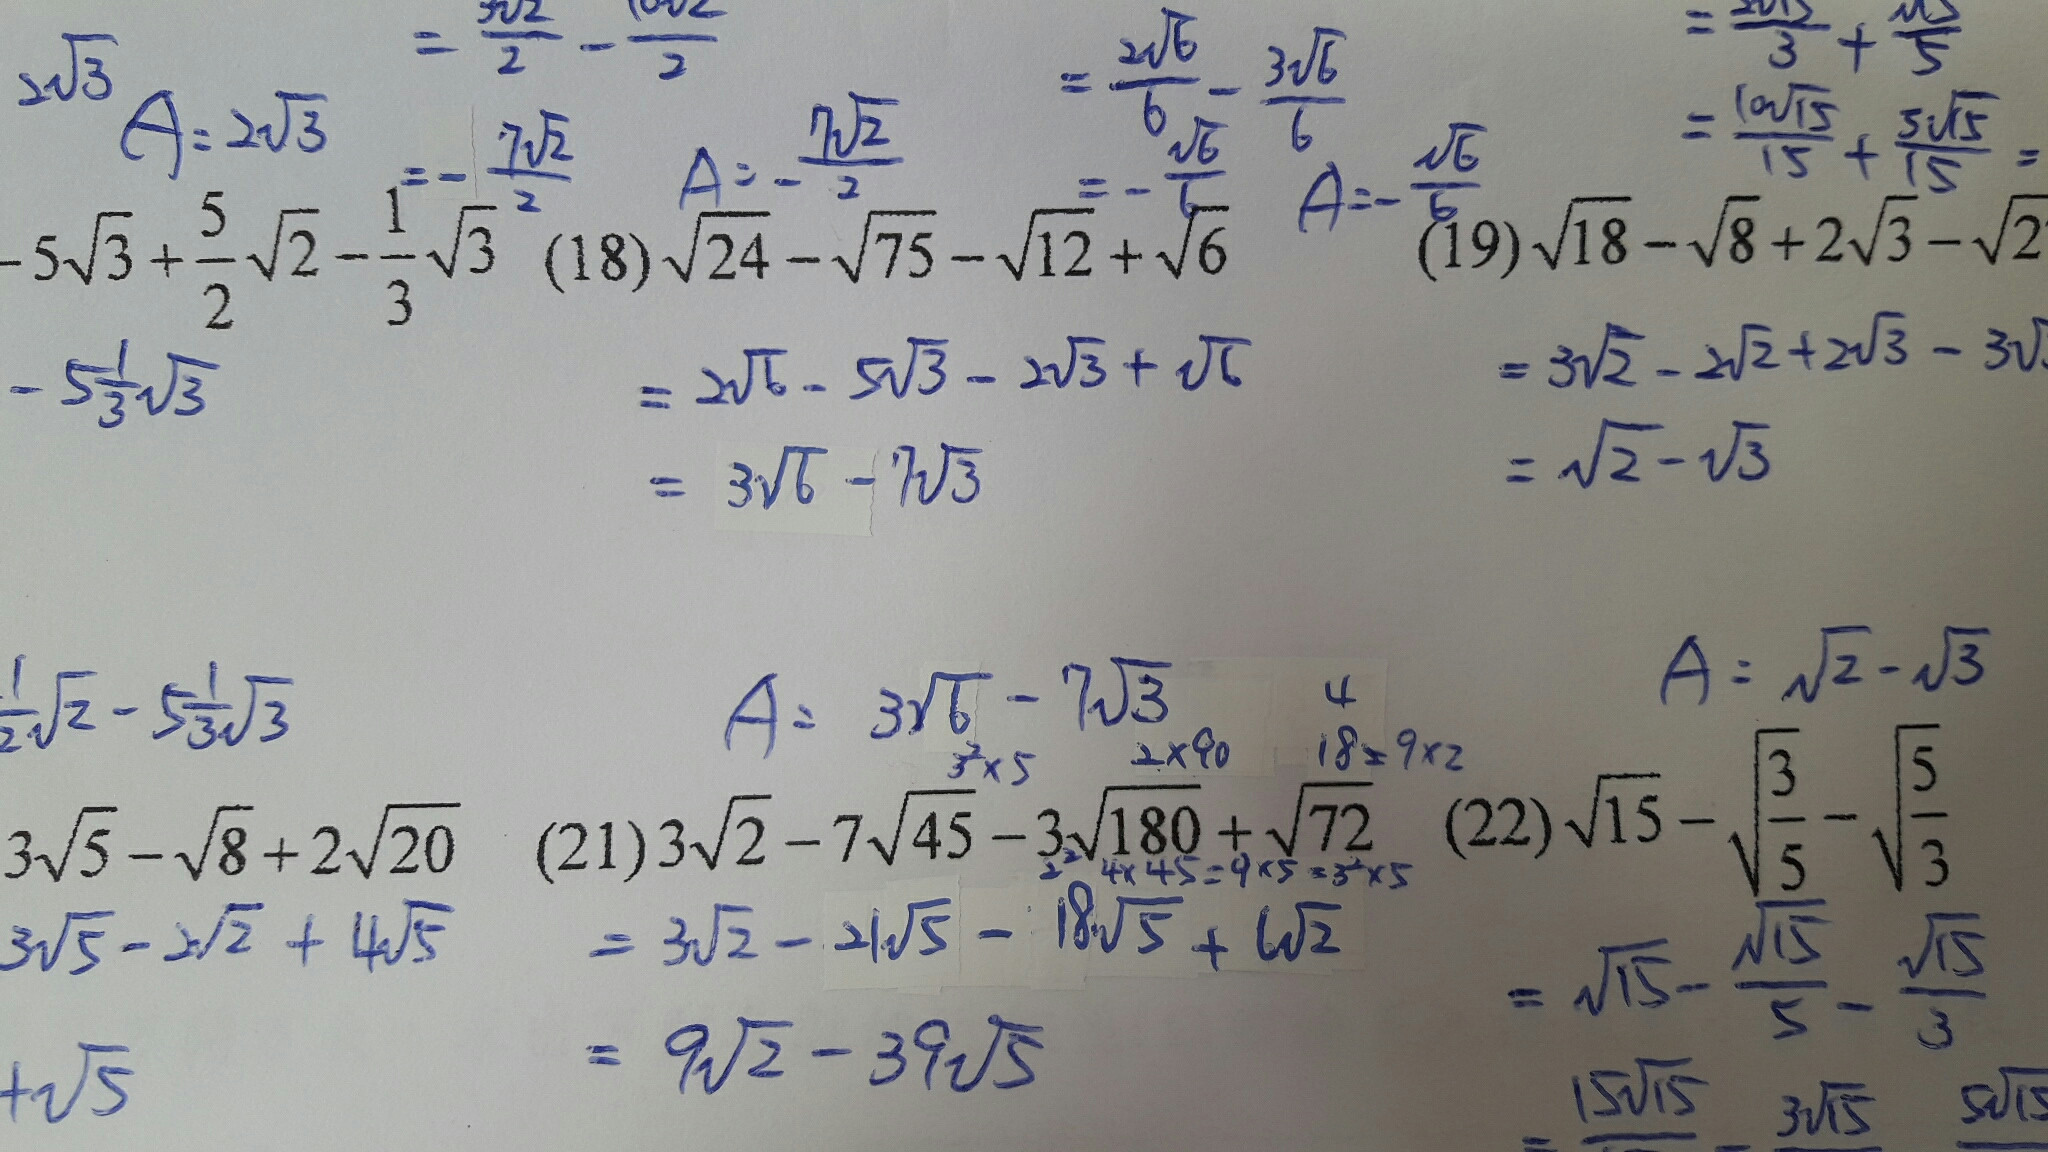 2√3
= 3√2/2 - 10√2/2
= 2√6/6 - 3√6/6
3 + √15/5
A = 2√3
= - 7√2/2
A = - 7√2/2
= - √6/6
A = - √6/6
= 10√15/15 + 5√15/15 =
- 5√3 + 5/2 √2 - 1/3 √3
(18) √24 - √75 - √12 + √6
(19) √18 - √8 + 2√3 -
- 5 1/3 √3
= 2√6 - 5√3 - 2√3 + √6
= 3√2 - 2√2 + 2√3 - 3√3
= 3√6 - 7√3
= √2 - √3
1/2 √2 - 5 1/3 √3
A = 3√6 - 7√3
A = √2 - √3
4
3² × 5
2 × 90
18 = 9 × 2
3√5 - √8 + 2√20
(21) 3√2 - 7√45 - 3√180 + √72
(22) √15 - √3/5 - √5/3
2² 4 × 45 = 9 × 5 = 3² × 5
3√5 - 2√2 + 4√5
= 3√2 - 21√5 - 18√5 + 6√2
= √15 - √15/5 - √15/3
+ √5
= 9√2 - 39√5
= 15√15 - 3√15 5√15